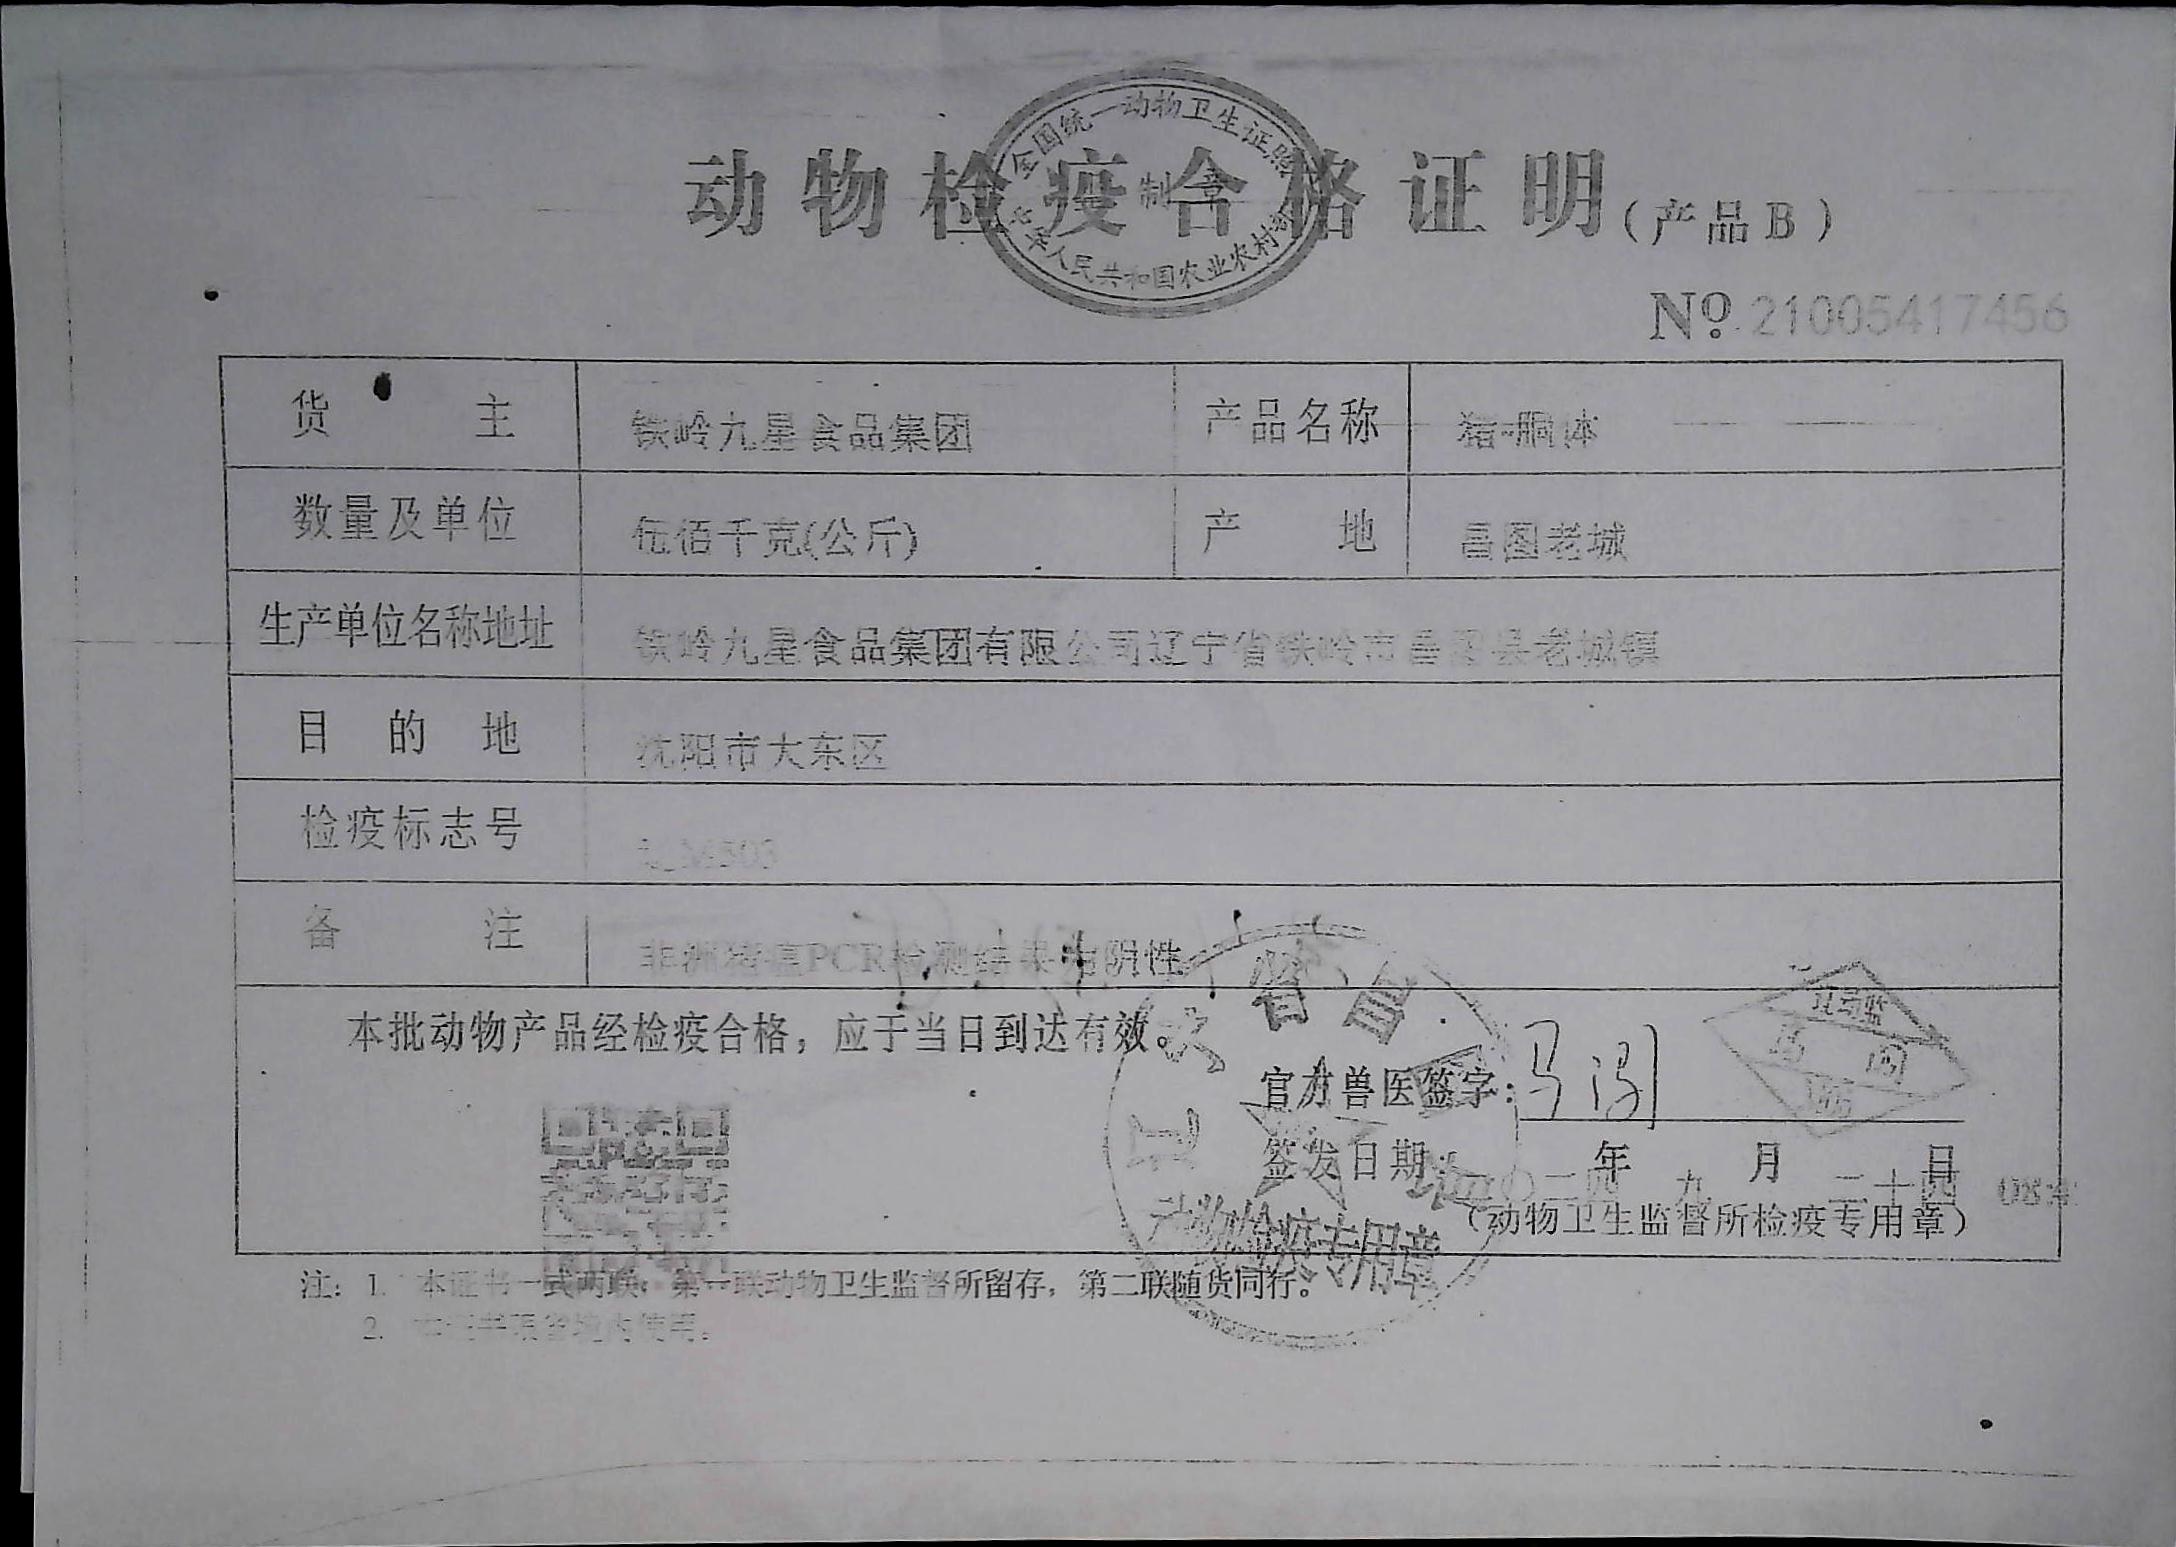 全国统一动物卫生证照
制章
中华人民共和国农业农村部
动物检疫合格证明(产品B)
№ 21005417456
货主 铁岭九星食品集团 产品名称 猪胴体
数量及单位 伍佰千克(公斤) 产地 昌图老城
生产单位名称地址 铁岭九星食品集团有限公司辽宁省铁岭市昌图县老城镇
目的地 沈阳市大东区
检疫标志号
备注 非洲猪瘟PCR检测结果为阴性
本批动物产品经检疫合格，应于当日到达有效。
官方兽医签字：马
签发日期： 二〇二四年 九月 二十四日 08:4
(动物卫生监督所检疫专用章)
动物检疫专用章
注：1. 本证书一式两联，第一联动物卫生监督所留存，第二联随货同行。
2.